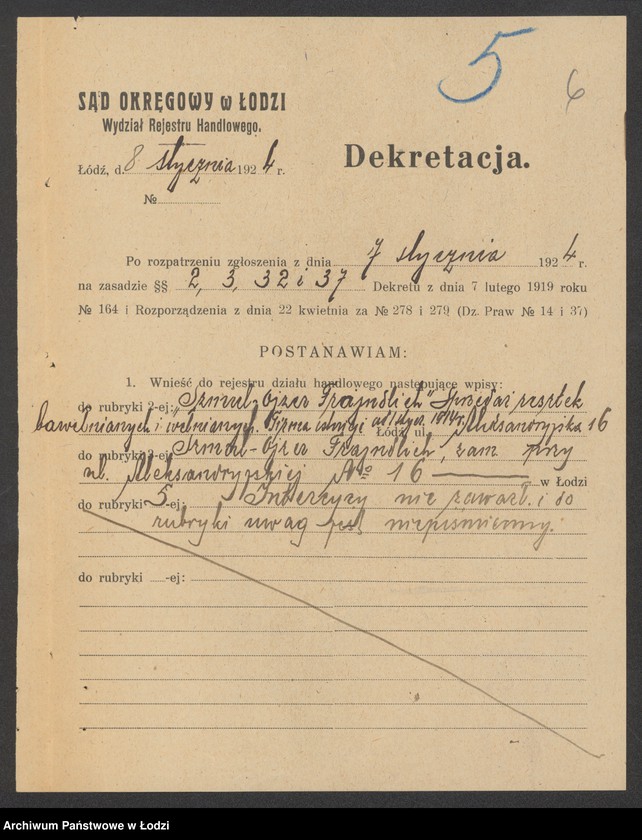 5 6
SĄD OKRĘGOWY w ŁODZI
Wydział Rejestru Handlowego.
Dekretacja.
Łódź, d. 8 stycznia 1924 r.
№
Po rozpatrzeniu zgłoszenia z dnia 7 stycznia 1924 r.
na zasadzie §§ 2, 3, 32 i 37 Dekretu z dnia 7 lutego 1919 roku
№ 164 i Rozporządzenia z dnia 22 kwietnia za № 278 i 279 (Dz. Praw № 14 i 37)
POSTANAWIAM:
1. Wnieść do rejestru działu handlowego następujące wpisy:
do rubryki 2-ej: „Szmul-Ojzer Frajndlich" Sprzedaż resztek
bawełnianych i wełnianych. Firma istnieje od 1914 r.
Łódź ul. Aleksandryjska 16
do rubryki 3-ej Szmul-Ojzer Frajndlich, zam. przy
ul. Aleksandryjskiej № 16 w Łodzi
do rubryki 5-ej: Intercyzy nie zawarł. i do
rubryki uwag jest niepiśmienny.
do rubryki -ej:
Archiwum Państwowe w Łodzi